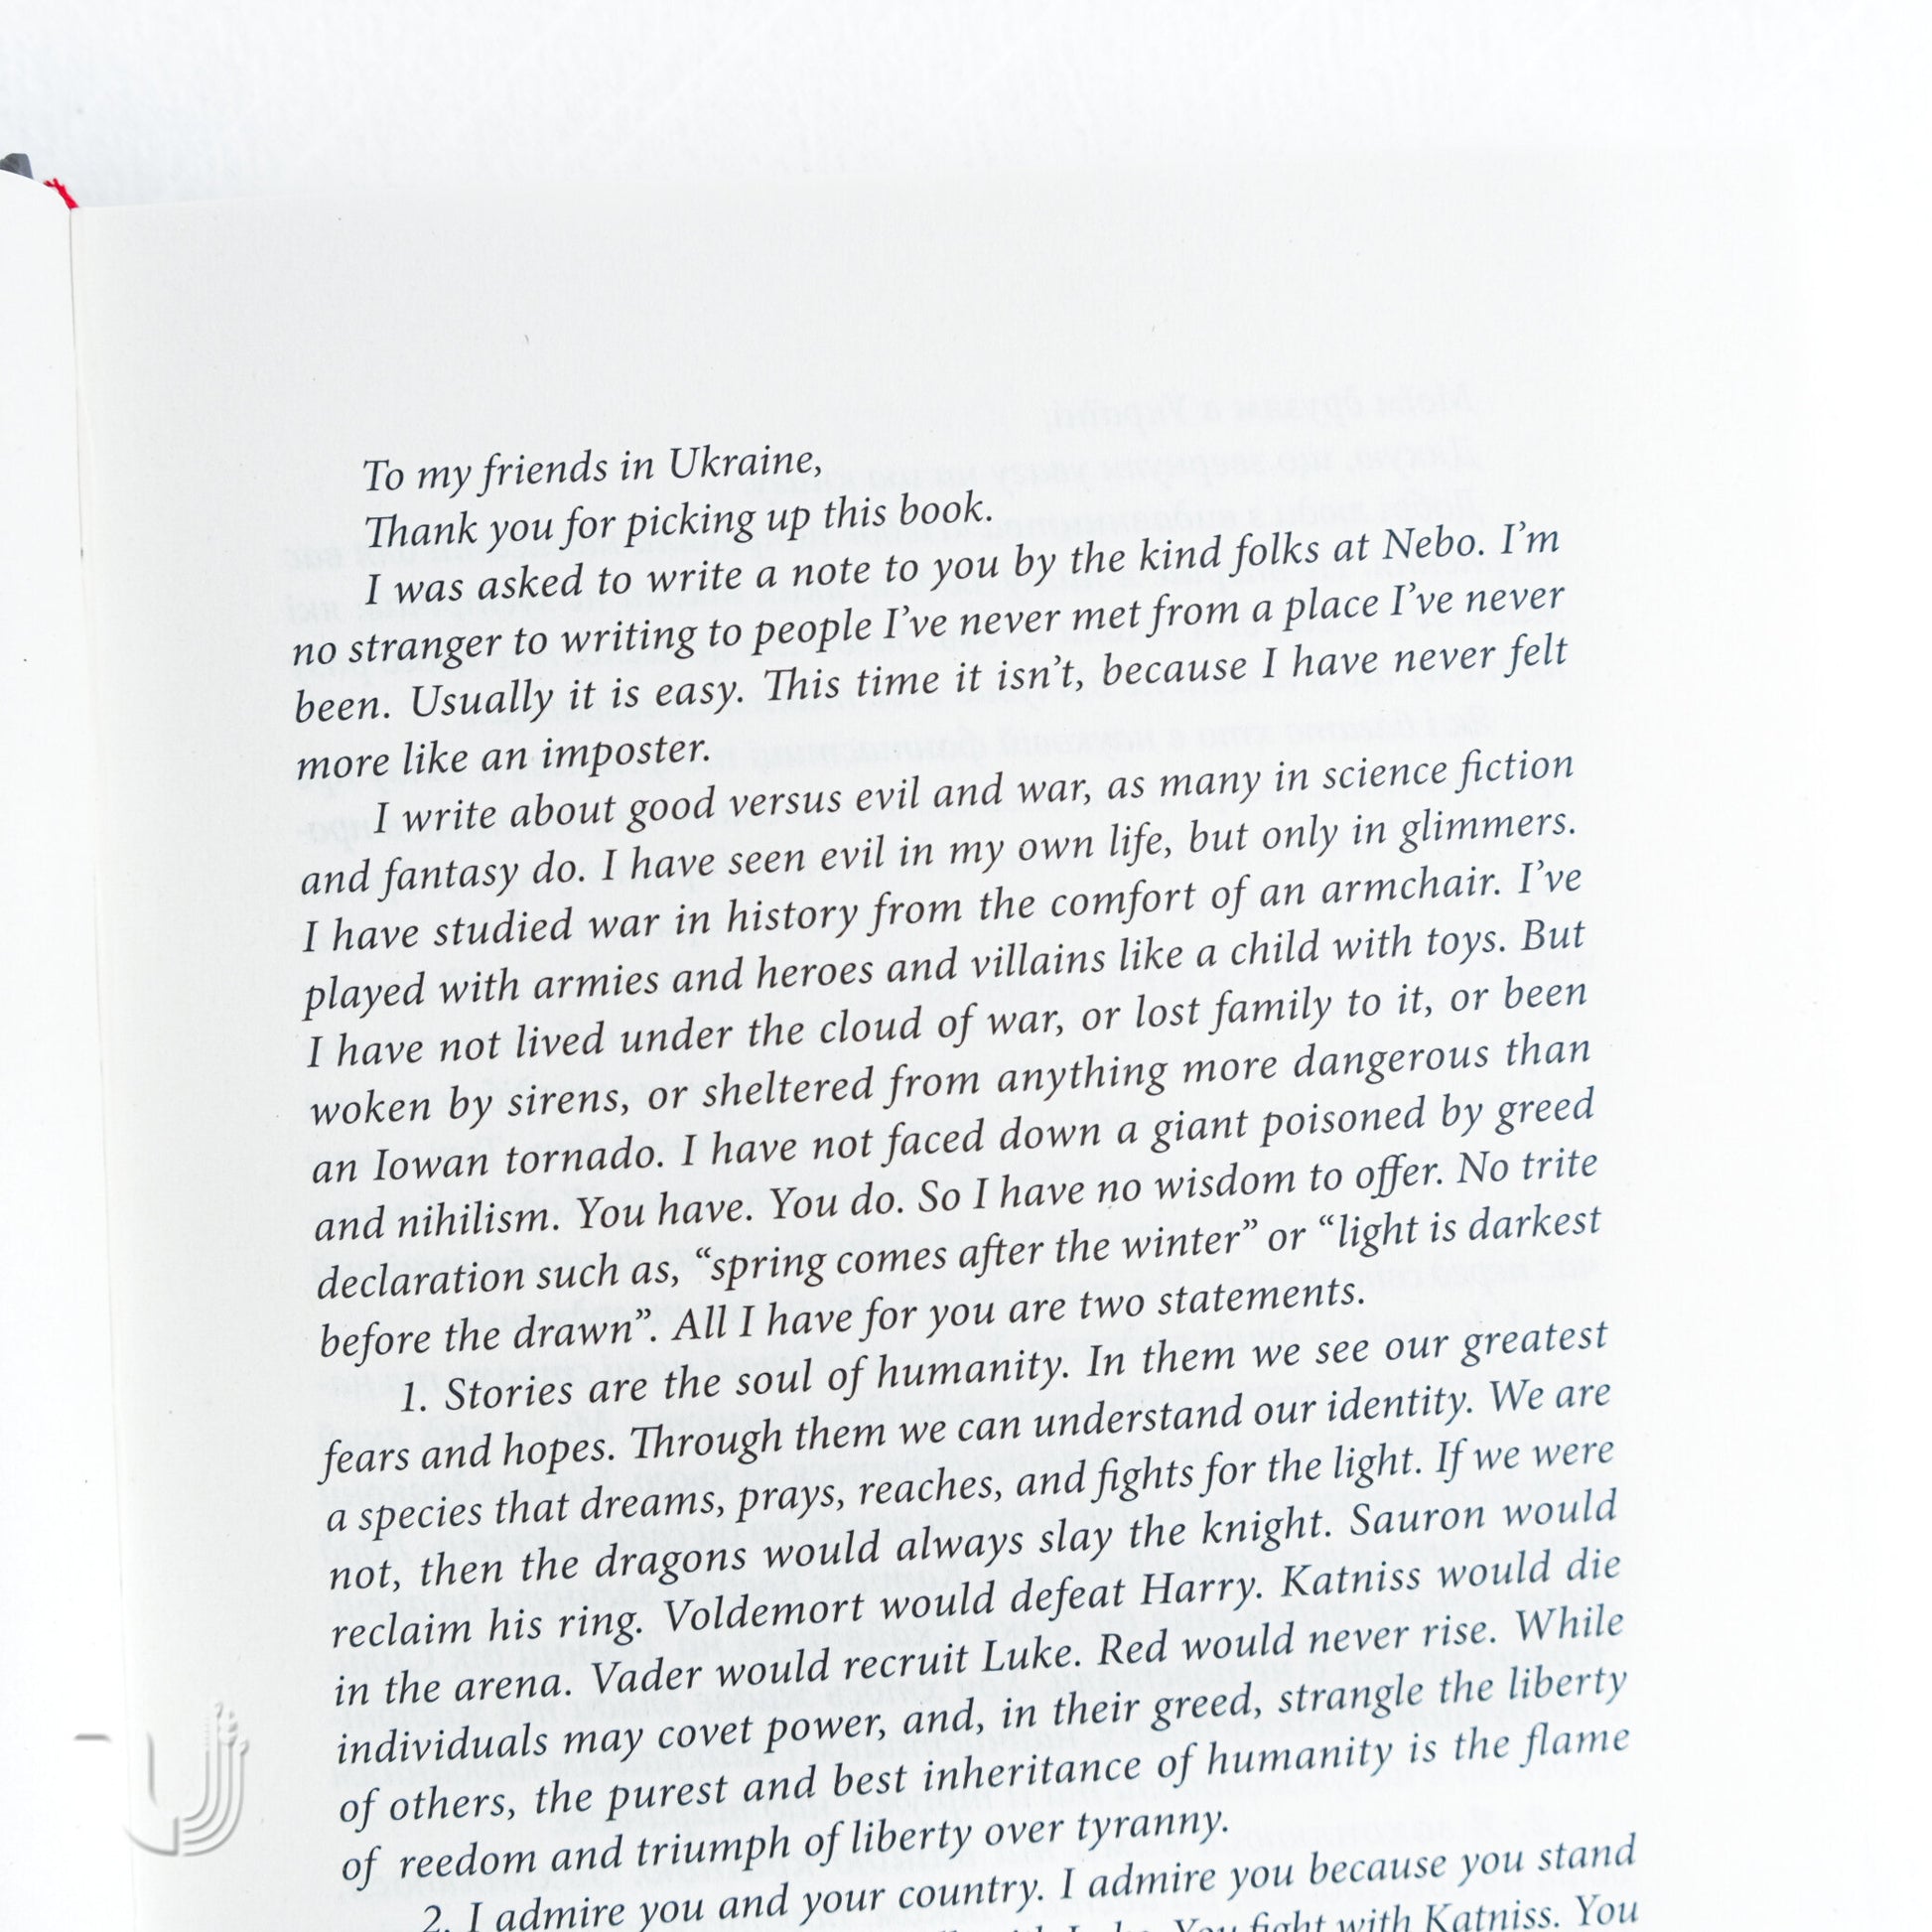 To my friends in Ukraine,
Thank you for picking up this book.
I was asked to write a note to you by the kind folks at Nebo. I’m
no stranger to writing to people I’ve never met from a place I’ve never
been. Usually it is easy. This time it isn’t, because I have never felt
more like an imposter.
I write about good versus evil and war, as many in science fiction
and fantasy do. I have seen evil in my own life, but only in glimmers.
I have studied war in history from the comfort of an armchair. I’ve
played with armies and heroes and villains like a child with toys. But
I have not lived under the cloud of war, or lost family to it, or been
woken by sirens, or sheltered from anything more dangerous than
an Iowan tornado. I have not faced down a giant poisoned by greed
and nihilism. You have. You do. So I have no wisdom to offer. No trite
declaration such as, “spring comes after the winter” or “light is darkest
before the drawn”. All I have for you are two statements.
1. Stories are the soul of humanity. In them we see our greatest
fears and hopes. Through them we can understand our identity. We are
a species that dreams, prays, reaches, and fights for the light. If we were
not, then the dragons would always slay the knight. Sauron would
reclaim his ring. Voldemort would defeat Harry. Katniss would die
in the arena. Vader would recruit Luke. Red would never rise. While
individuals may covet power, and, in their greed, strangle the liberty
of others, the purest and best inheritance of humanity is the flame
of reedom and triumph of liberty over tyranny.
2. I admire you and your country. I admire you because you stand
You fight with Katniss. You